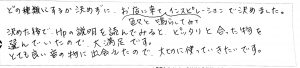 どの種類にするか決めずに、お店に来てインスピレーションで決めました。
試しに鳴らしてみて
決めた後で、Hpの説明を読んでみると、ピッタリと合った物を
選んでいたので、大満足です。
とても良い音の物に出会えたので、大切に使っていきたいです。